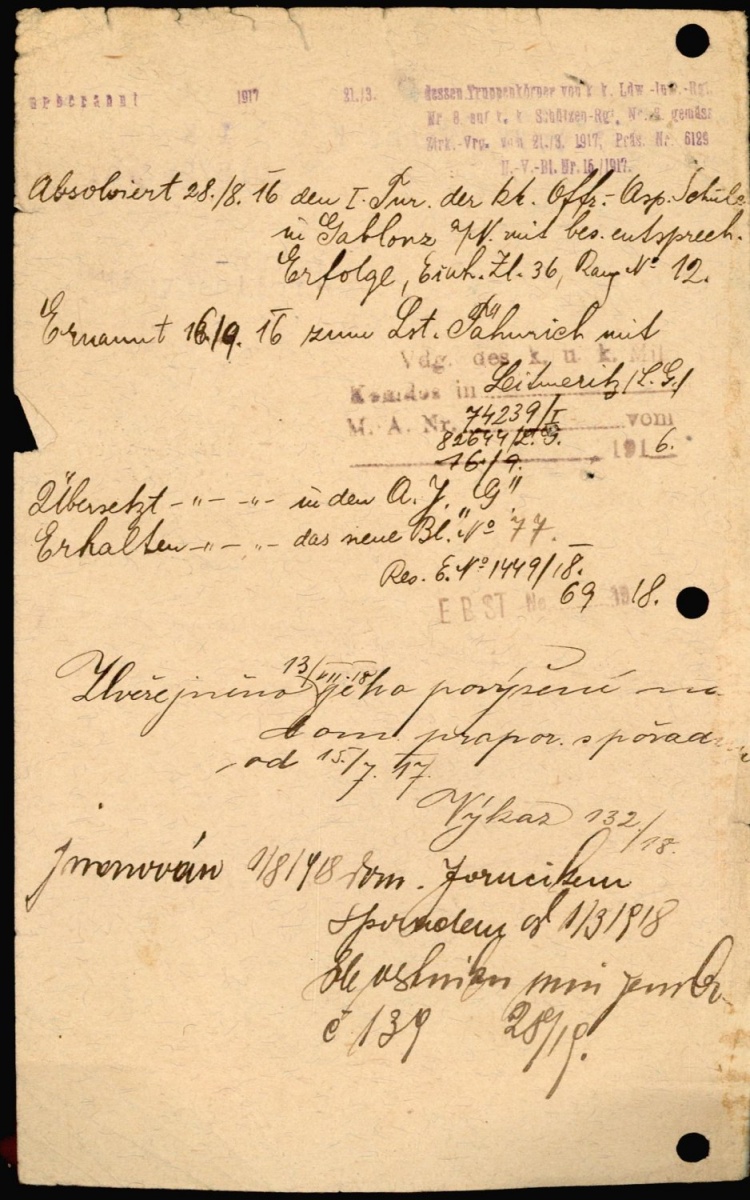 1917 21./3. dessen Truppenkörper von k. k. Ldw.-Inf.-Rgt.
Nr 8 auf k. k. Schützen-Rgt. Nr. 8 gemäss
Zirk.-Vrg. vom 21./3. 1917, Präs. Nr. 5129
N.-V.-Bl. Nr. 15/1917.
Absolviert 28./8. 16 den I. Tur. der kk. Offr.-Asp. Schule
in Gablonz a/N. mit bes. entsprech.
Erfolge, Einh. Zl. 36, Rang No 12.
Ernannt 16/9. 16 zum Lst. Fähnrich mit
Vdg. des k. u. k. Mil.
Komdos in Leitmeritz /L. G./
M. A. Nr. 74239/I vom
82644/L. G.
16./9. 1916.
Übersetzt -"- -"- in den A. J. "G"
Erhalten -"- -"- das neue Bl. No 77.
Res. E. No 1449/18.
EBST No 69 1918.
Zveřejněno 13/VII. 18 jeho povýšení na
dom. prapor. s pořad
od 15./7. 17.
Výkaz 132/18.
Jmenován 1/8 1918 dom.
od 1/3 1918
č 139 28/19.